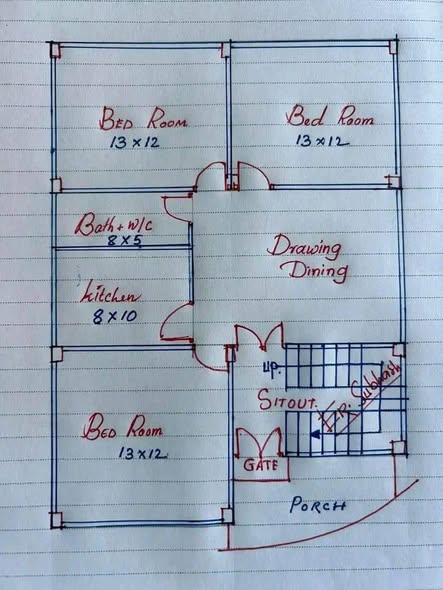 BED ROOM
13 × 12
Bed Room
13 × 12
Bath + W/C
8 × 5
Drawing
Dining
kitchen
8 × 10
UP.
SITOUT.
Er. Subhash
BED ROOM
13 × 12
GATE
PORCH